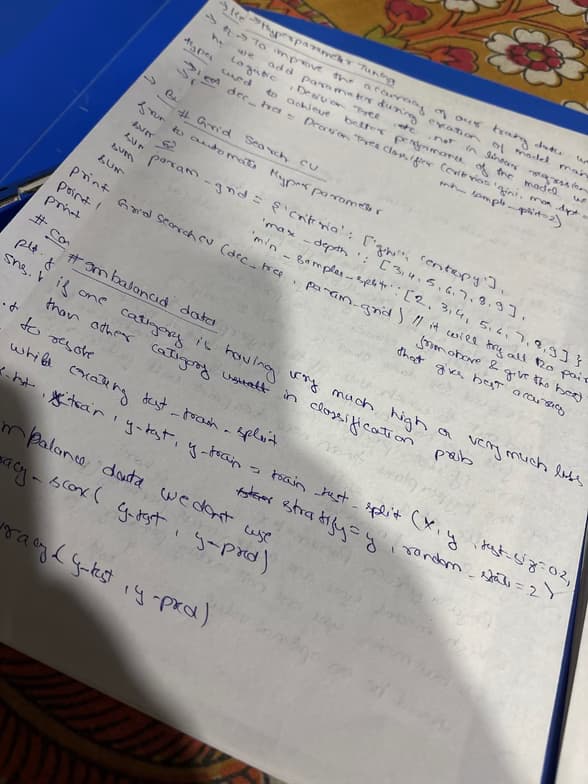 Hyperparameter Tuning
To improve the accuracy of our training data,
we add parameter during creation of model
Logistic, Decision Tree etc. not in linear regression
used to achieve better performance of the model
dec_tree = DecisionTreeclassifier (criterion= gini, max_dept
min_sample_split=2)
# Grid Search CV
to automate Hyperparameter
param_grid = { 'Criteria': ["gini", "entropy"],
'max_depth': [3, 4, 5, 6, 7, 8, 9],
'min_samples_split': [2, 3, 4, 5, 6, 7, 8, 9] }
GridSearchcv (dec_tree, param_grid) // it will try all the pair
from above & give the best
that give best accuracy
print
print
print
# Imbalanced data
if one category is having very much high or very much less
than other category in classification prob
to resolve
while creating test_train_split
x_train, y_test, y_train = train_test_split (X, y, test_size=0.2,
stratify=y, random_state=2)
mbalance data we dont use
racy_score( y_test, y_pred)
uracy( y_test, y_pred)